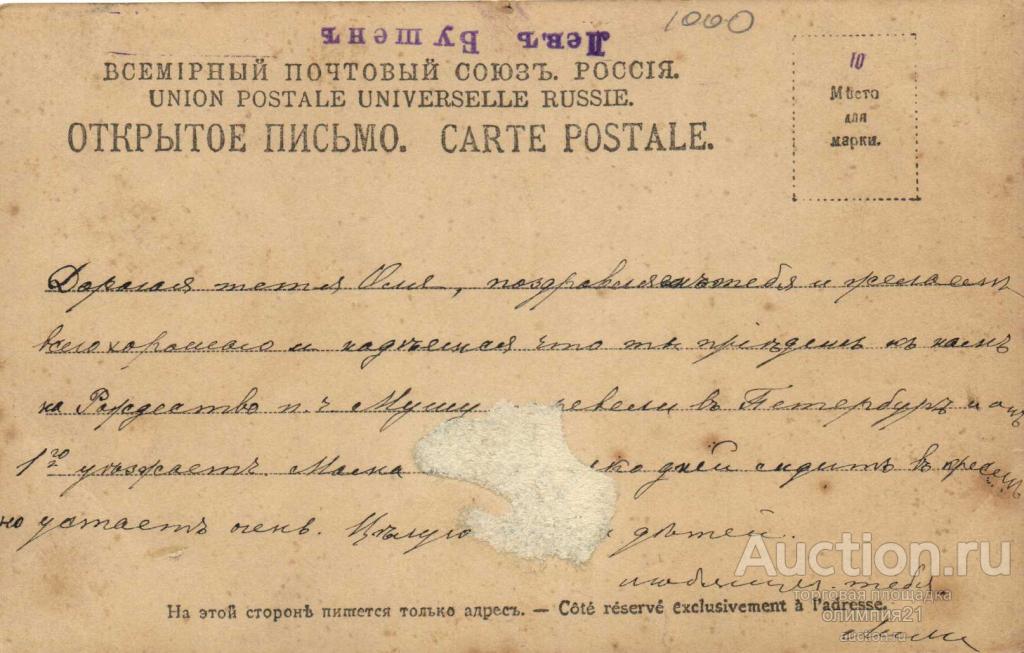 1000
Левъ Бушенъ
ВСЕМІРНЫЙ ПОЧТОВЫЙ СОЮЗЪ. РОССІЯ.
UNION POSTALE UNIVERSELLE RUSSIE.
ОТКРЫТОЕ ПИСЬМО. CARTE POSTALE.
10
Мѣсто
для
марки.
Дорогая тетя Оля, поздравляемъ тебя и желаемъ
всего хорошаго и надѣемся что ты пріѣдешь къ намъ
на Рождество п. ч. Мушу ревели въ Петербургъ и онъ
1го уѣзжаетъ. Мама ко дней сидитъ въ креслѣ
но устаетъ очень. Цѣлую дѣтей.
любящая тебя
На этой сторонѣ пишется только адресъ. — Côté réservé exclusivement à l'adresse.
Auction.ru
торговая площадка
олимпия21
auction.ru